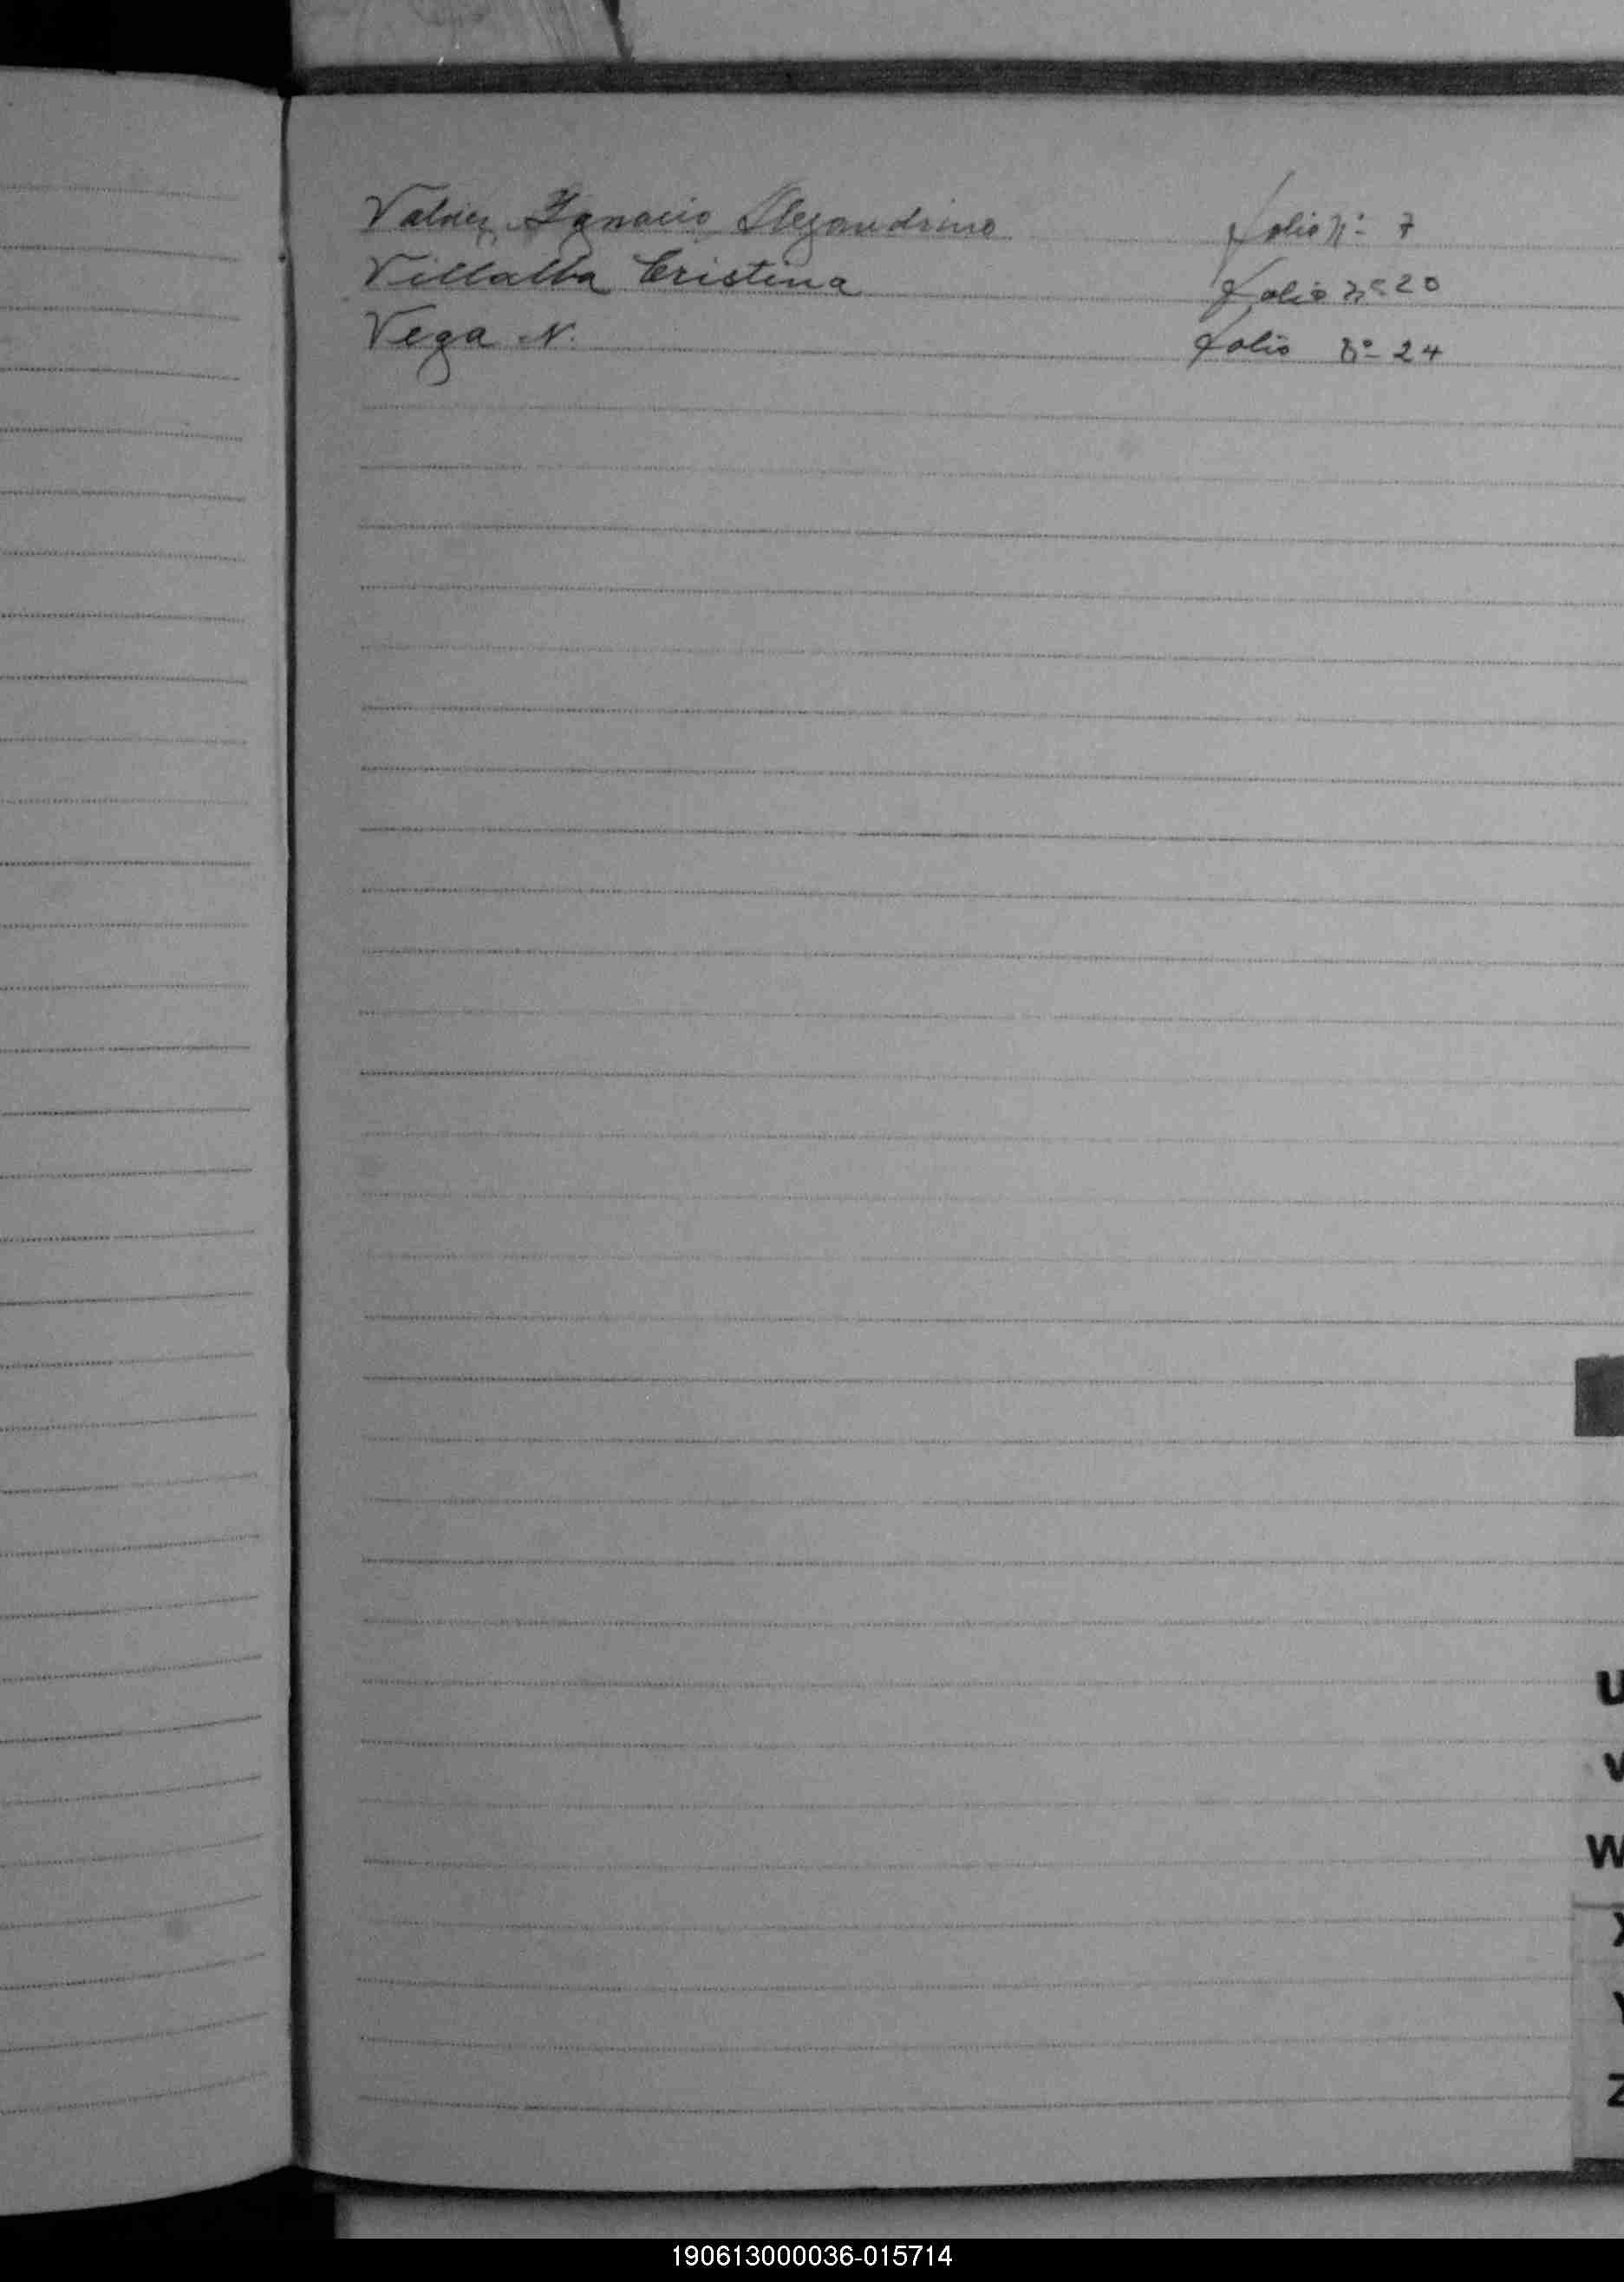 Ignacio Alejandrino folio Nº 7
Villalba Cristina folio Nº 20
Vega N. folio Nº 24
U
V
W
X
Y
Z
190613000036-015714